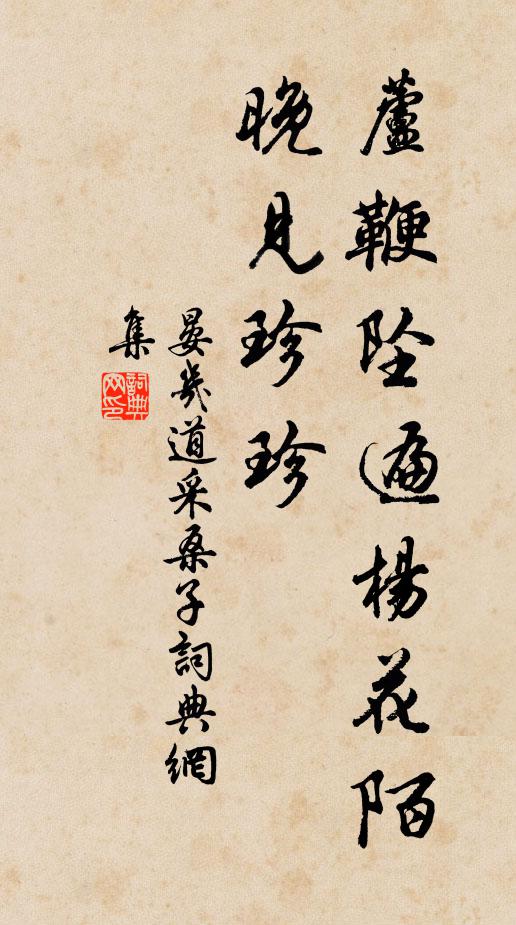 蘆鞭墜遍楊花陌
晚見珍珍
晏幾道采桑子詞典網
集
詞典
网印